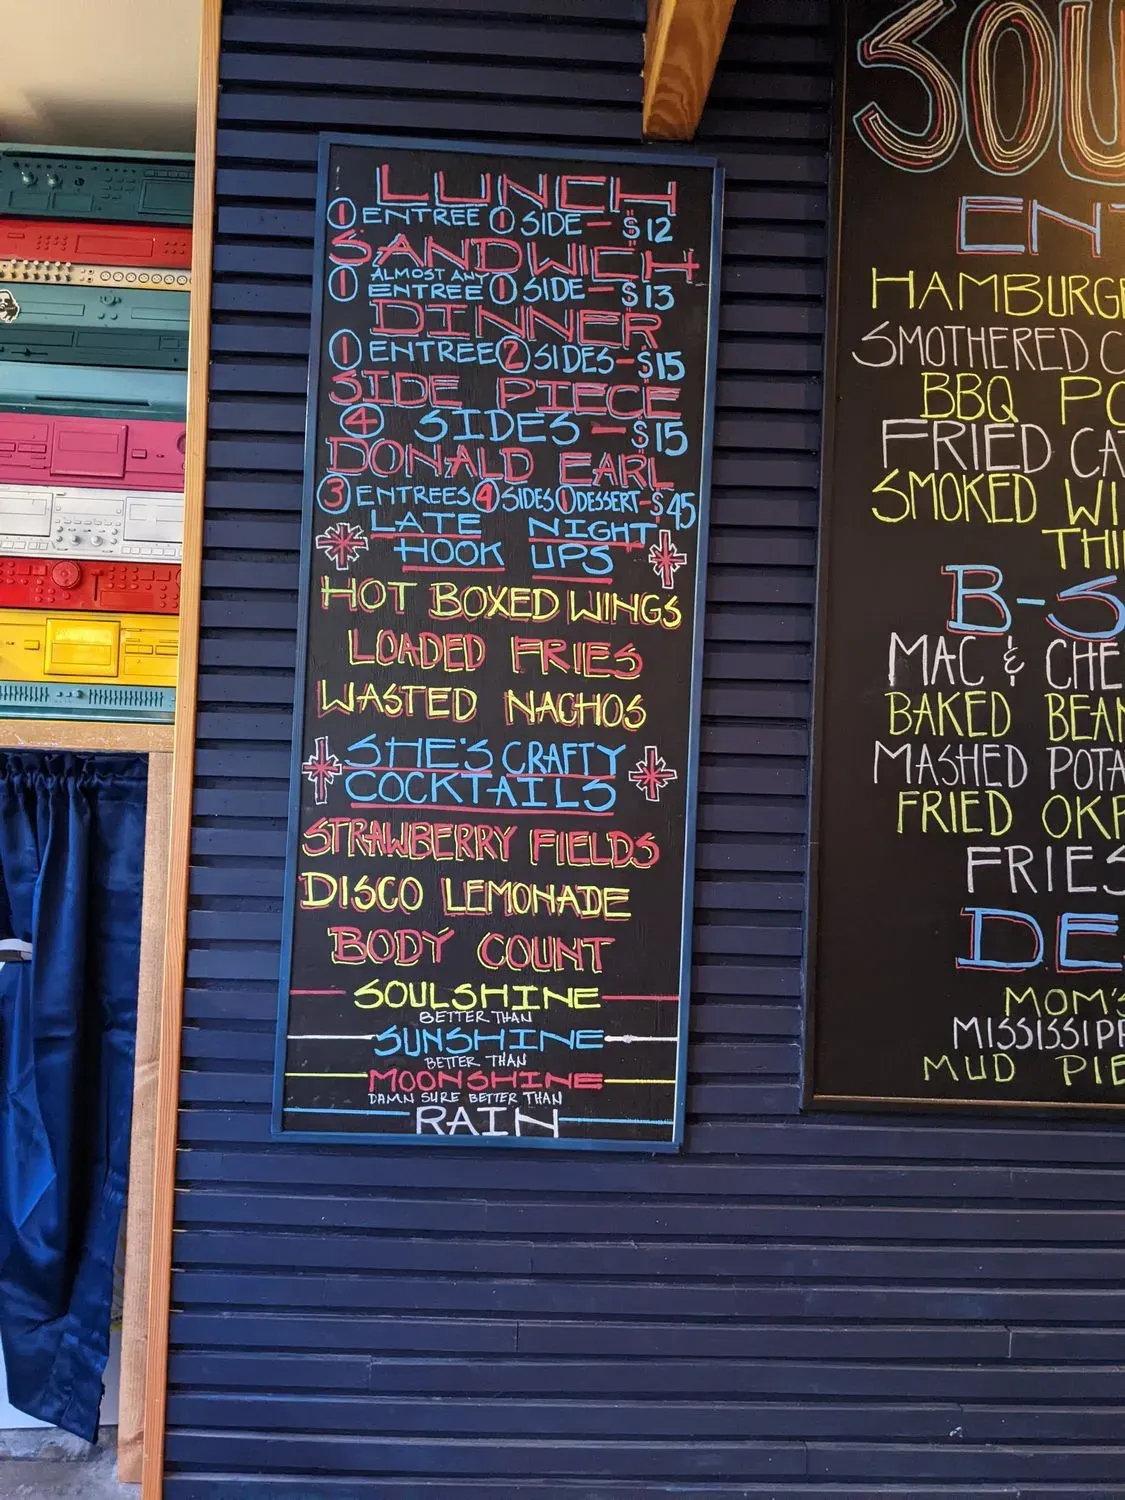 LUNCH
1 ENTREE 1 SIDE - $12
SANDWICH
1 ALMOST ANY ENTREE 1 SIDE - $13
DINNER
1 ENTREE 2 SIDES - $15
SIDE PIECE
4 SIDES - $15
DONALD EARL
3 ENTREES 4 SIDES 1 DESSERT - $45
LATE NIGHT
HOOK UPS
HOT BOXED WINGS
LOADED FRIES
WASTED NACHOS
SHE'S CRAFTY
COCKTAILS
STRAWBERRY FIELDS
DISCO LEMONADE
BODY COUNT
SOULSHINE
BETTER THAN
SUNSHINE
BETTER THAN
MOONSHINE
DAMN SURE BETTER THAN
RAIN
SOU
ENT
HAMBURGE
SMOTHERED C
BBQ PO
FRIED CAT
SMOKED WI
THI
B-S
MAC & CHE
BAKED BEAN
MASHED POTA
FRIED OKR
FRIES
DE
MOM'S
MISSISSIPP
MUD PIE